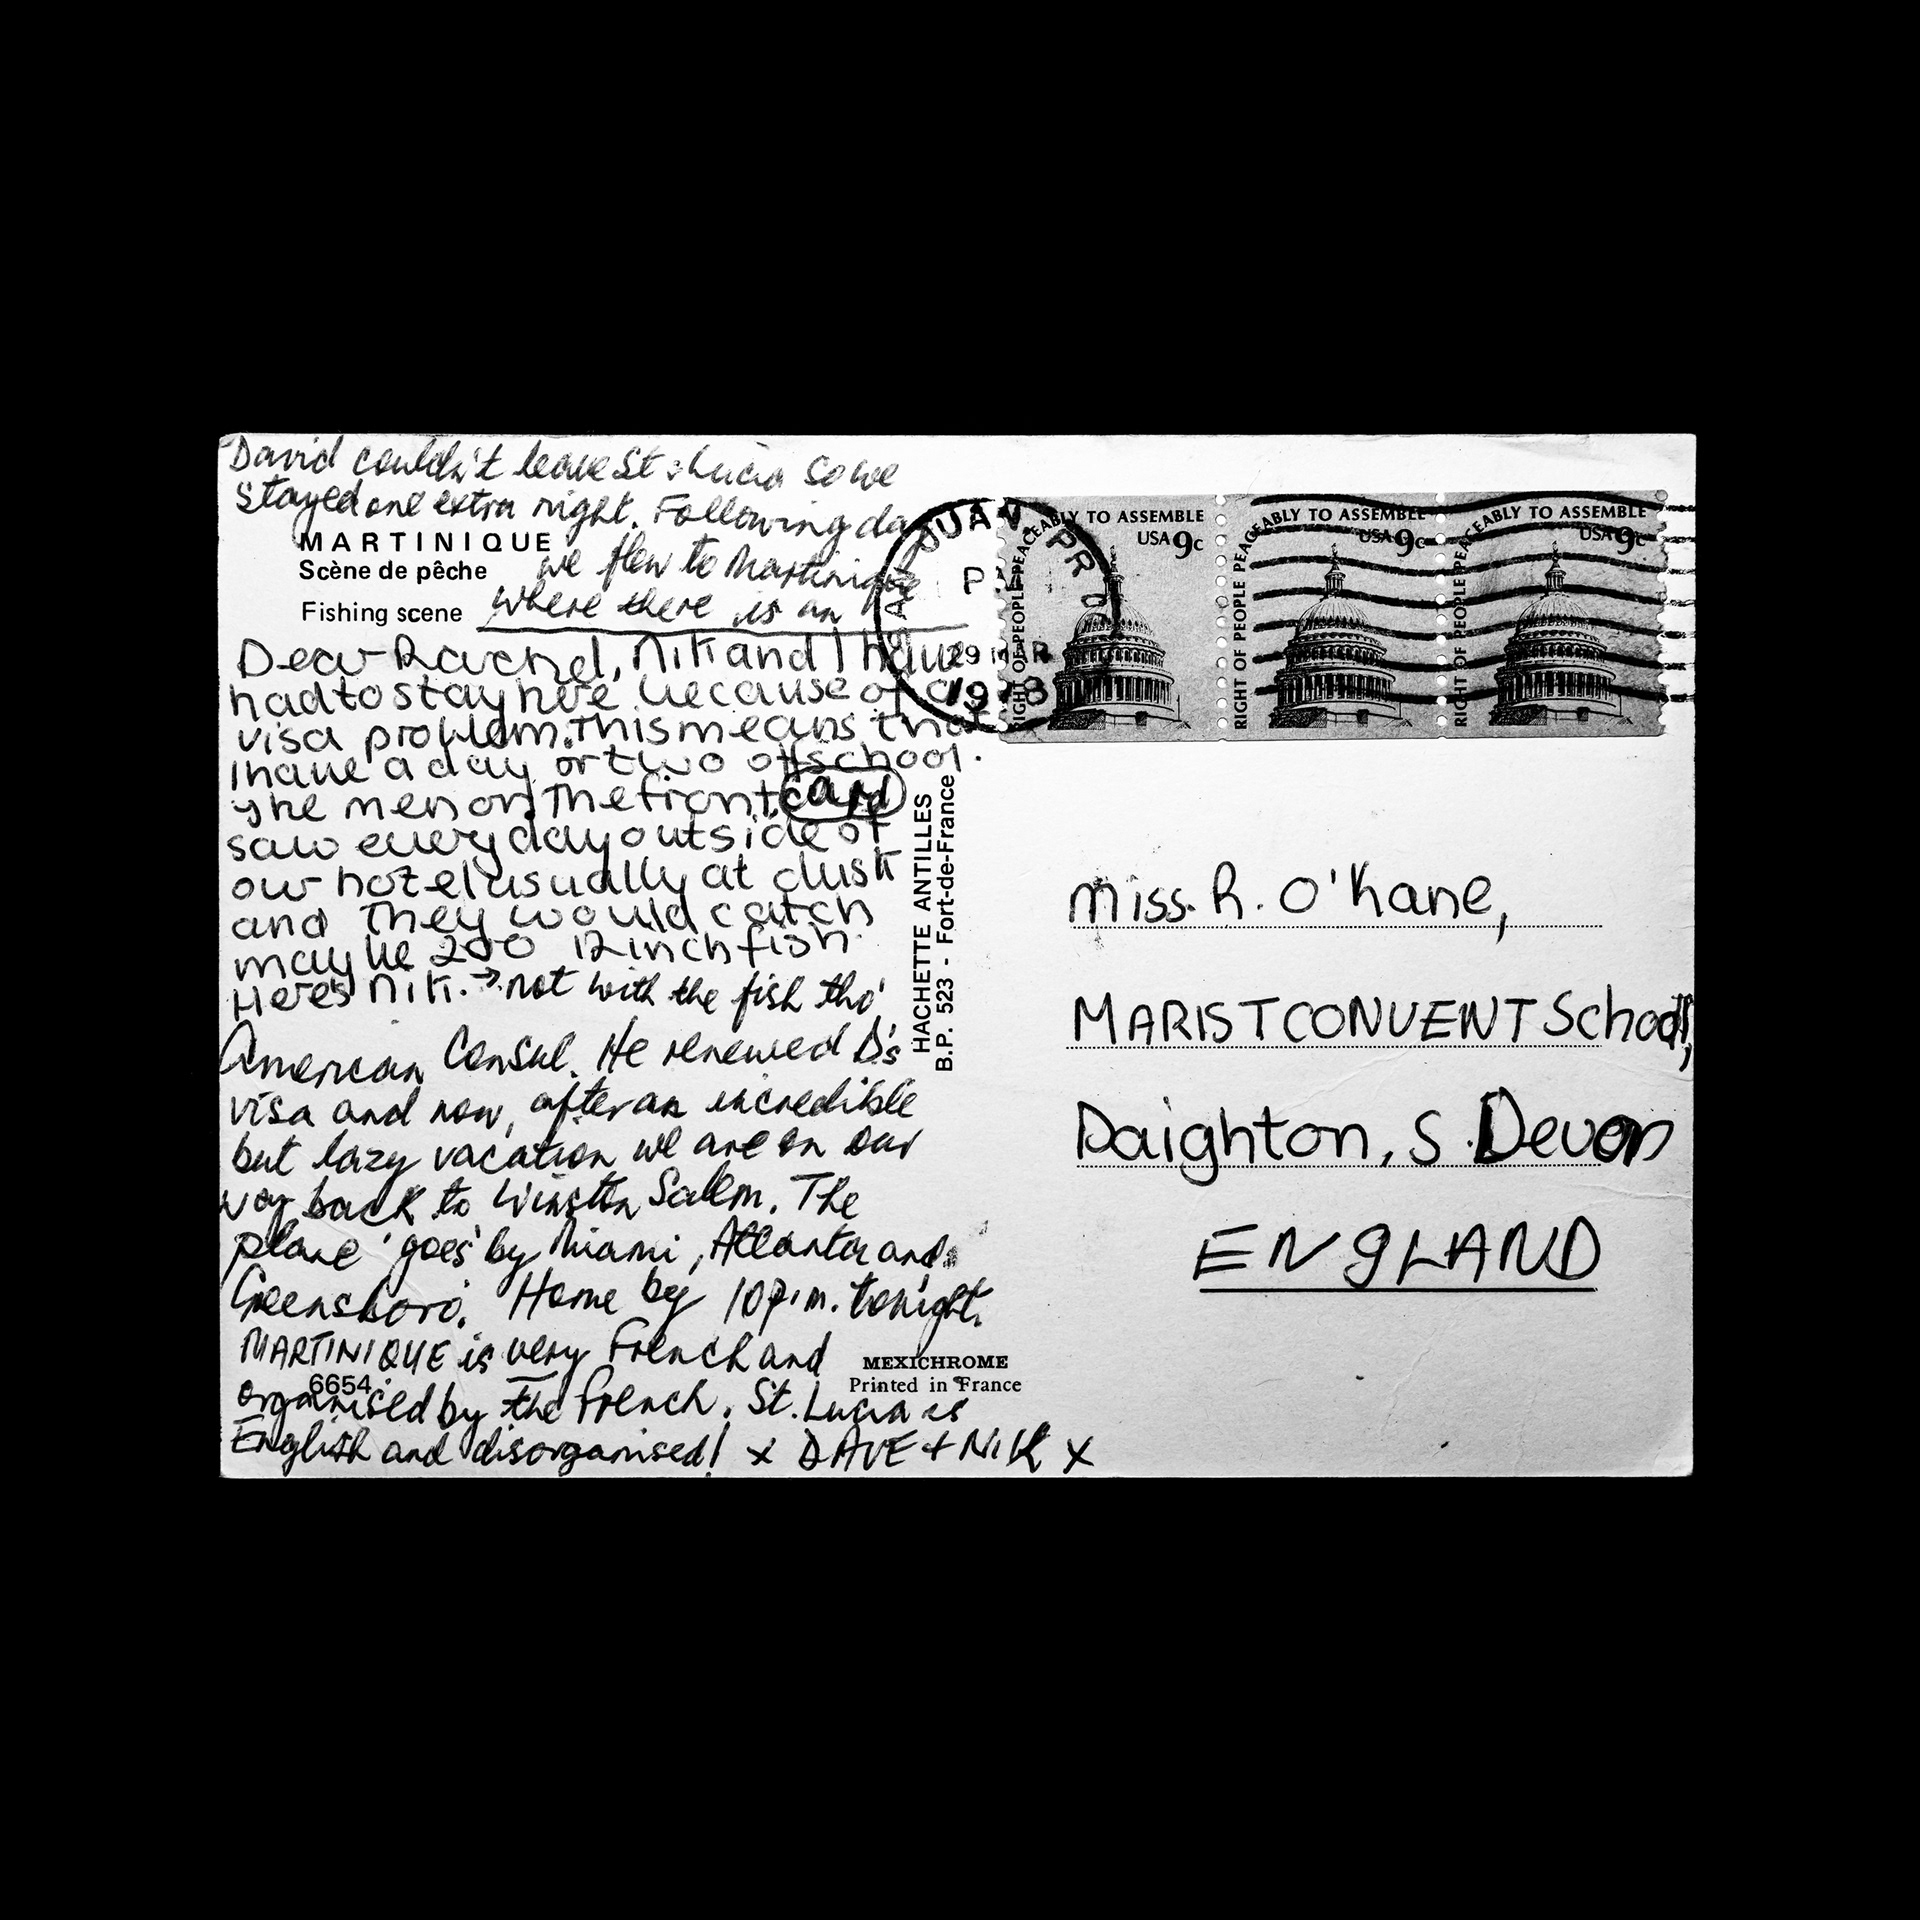 David couldn't leave St. Lucia so we
stayed one extra night. Following day
MARTINIQUE
Scène de pêche
we flew to Martinique
Fishing scene
where there is an
Dear Rachel, Nik and I have
had to stay here because of a
visa problem. This means that
I have a day or two off school.
The men on the front card
saw every day outside of
our hotel usually at dusk
and they would catch
maybe 200 12 inch fish.
Here's Nik. → not with the fish tho'
American Consul. He renewed D's
visa and now, after an incredible
but lazy vacation we are on our
way back to Winston Salem. The
plane 'goes' by Miami, Atlanta and
Greensboro. Home by 10 p.m. tonight.
MARTINIQUE is very French and
6654
organised by the French. St. Lucia is
English and disorganised! x DAVE + NIK x
HACHETTE ANTILLES
B.P. 523 - Fort-de-France
MEXICHROME
Printed in France
JUAN PR
29 MAR
1978
RIGHT OF PEOPLE PEACEABLY TO ASSEMBLE
USA 9c
RIGHT OF PEOPLE PEACEABLY TO ASSEMBLE
USA 9c
RIGHT OF PEOPLE PEACEABLY TO ASSEMBLE
USA 9c
Miss. R. O'Kane,
MARIST CONVENT School,
Paighton, S. Devon
ENGLAND